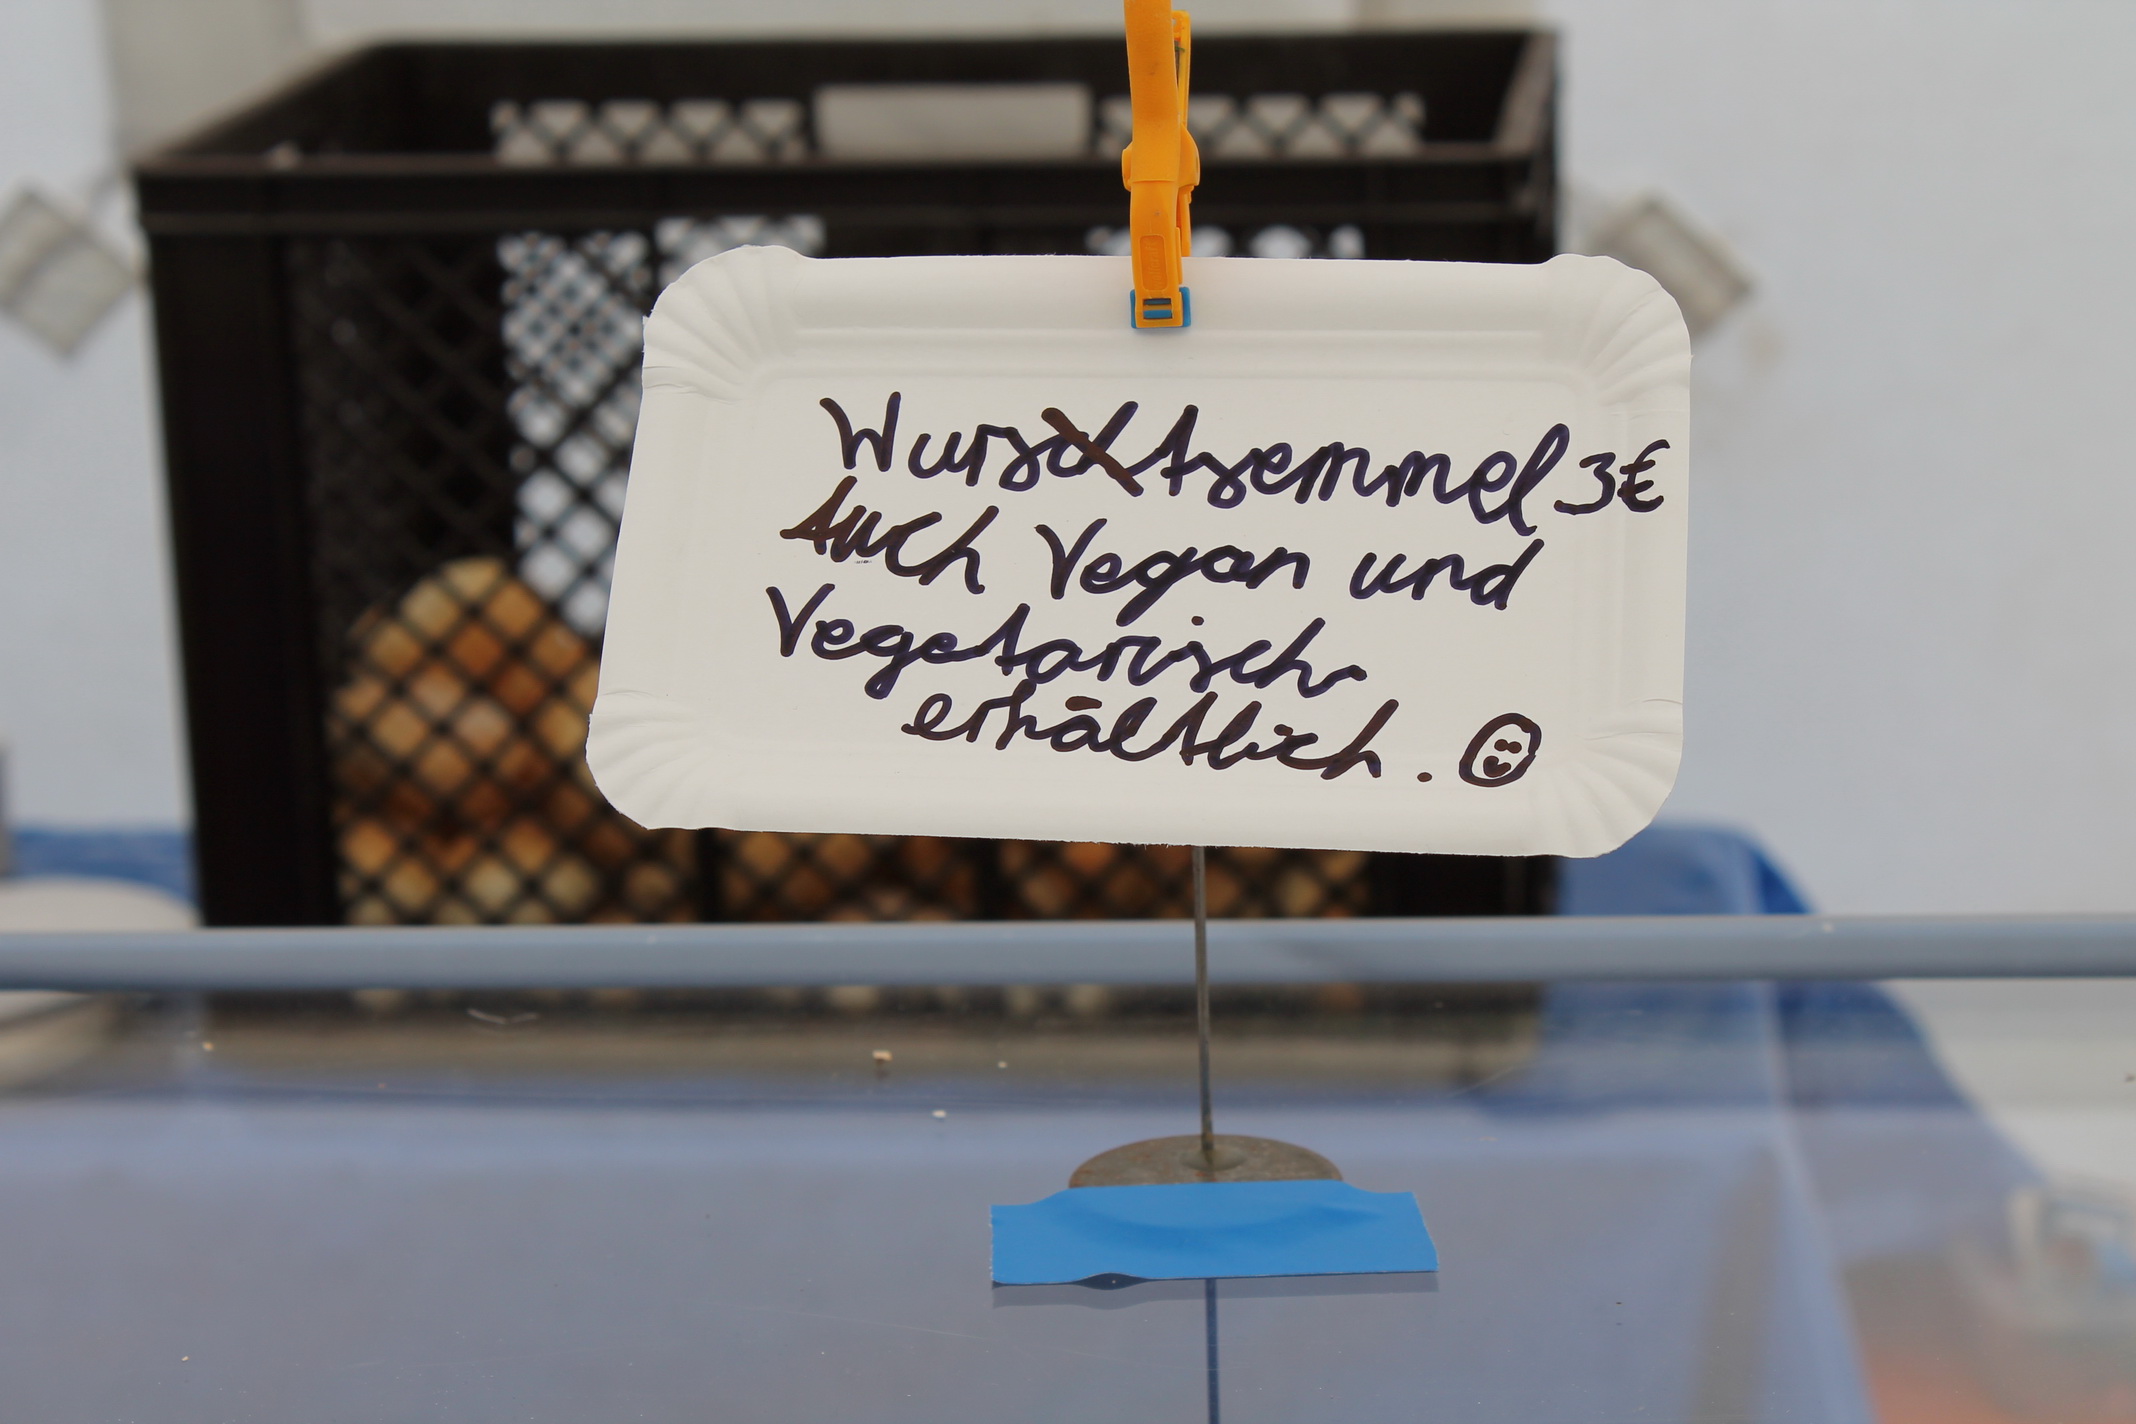 Wurschtsemmel 3€
Auch Vegan und
Vegetarisch
erhältlich. ☺